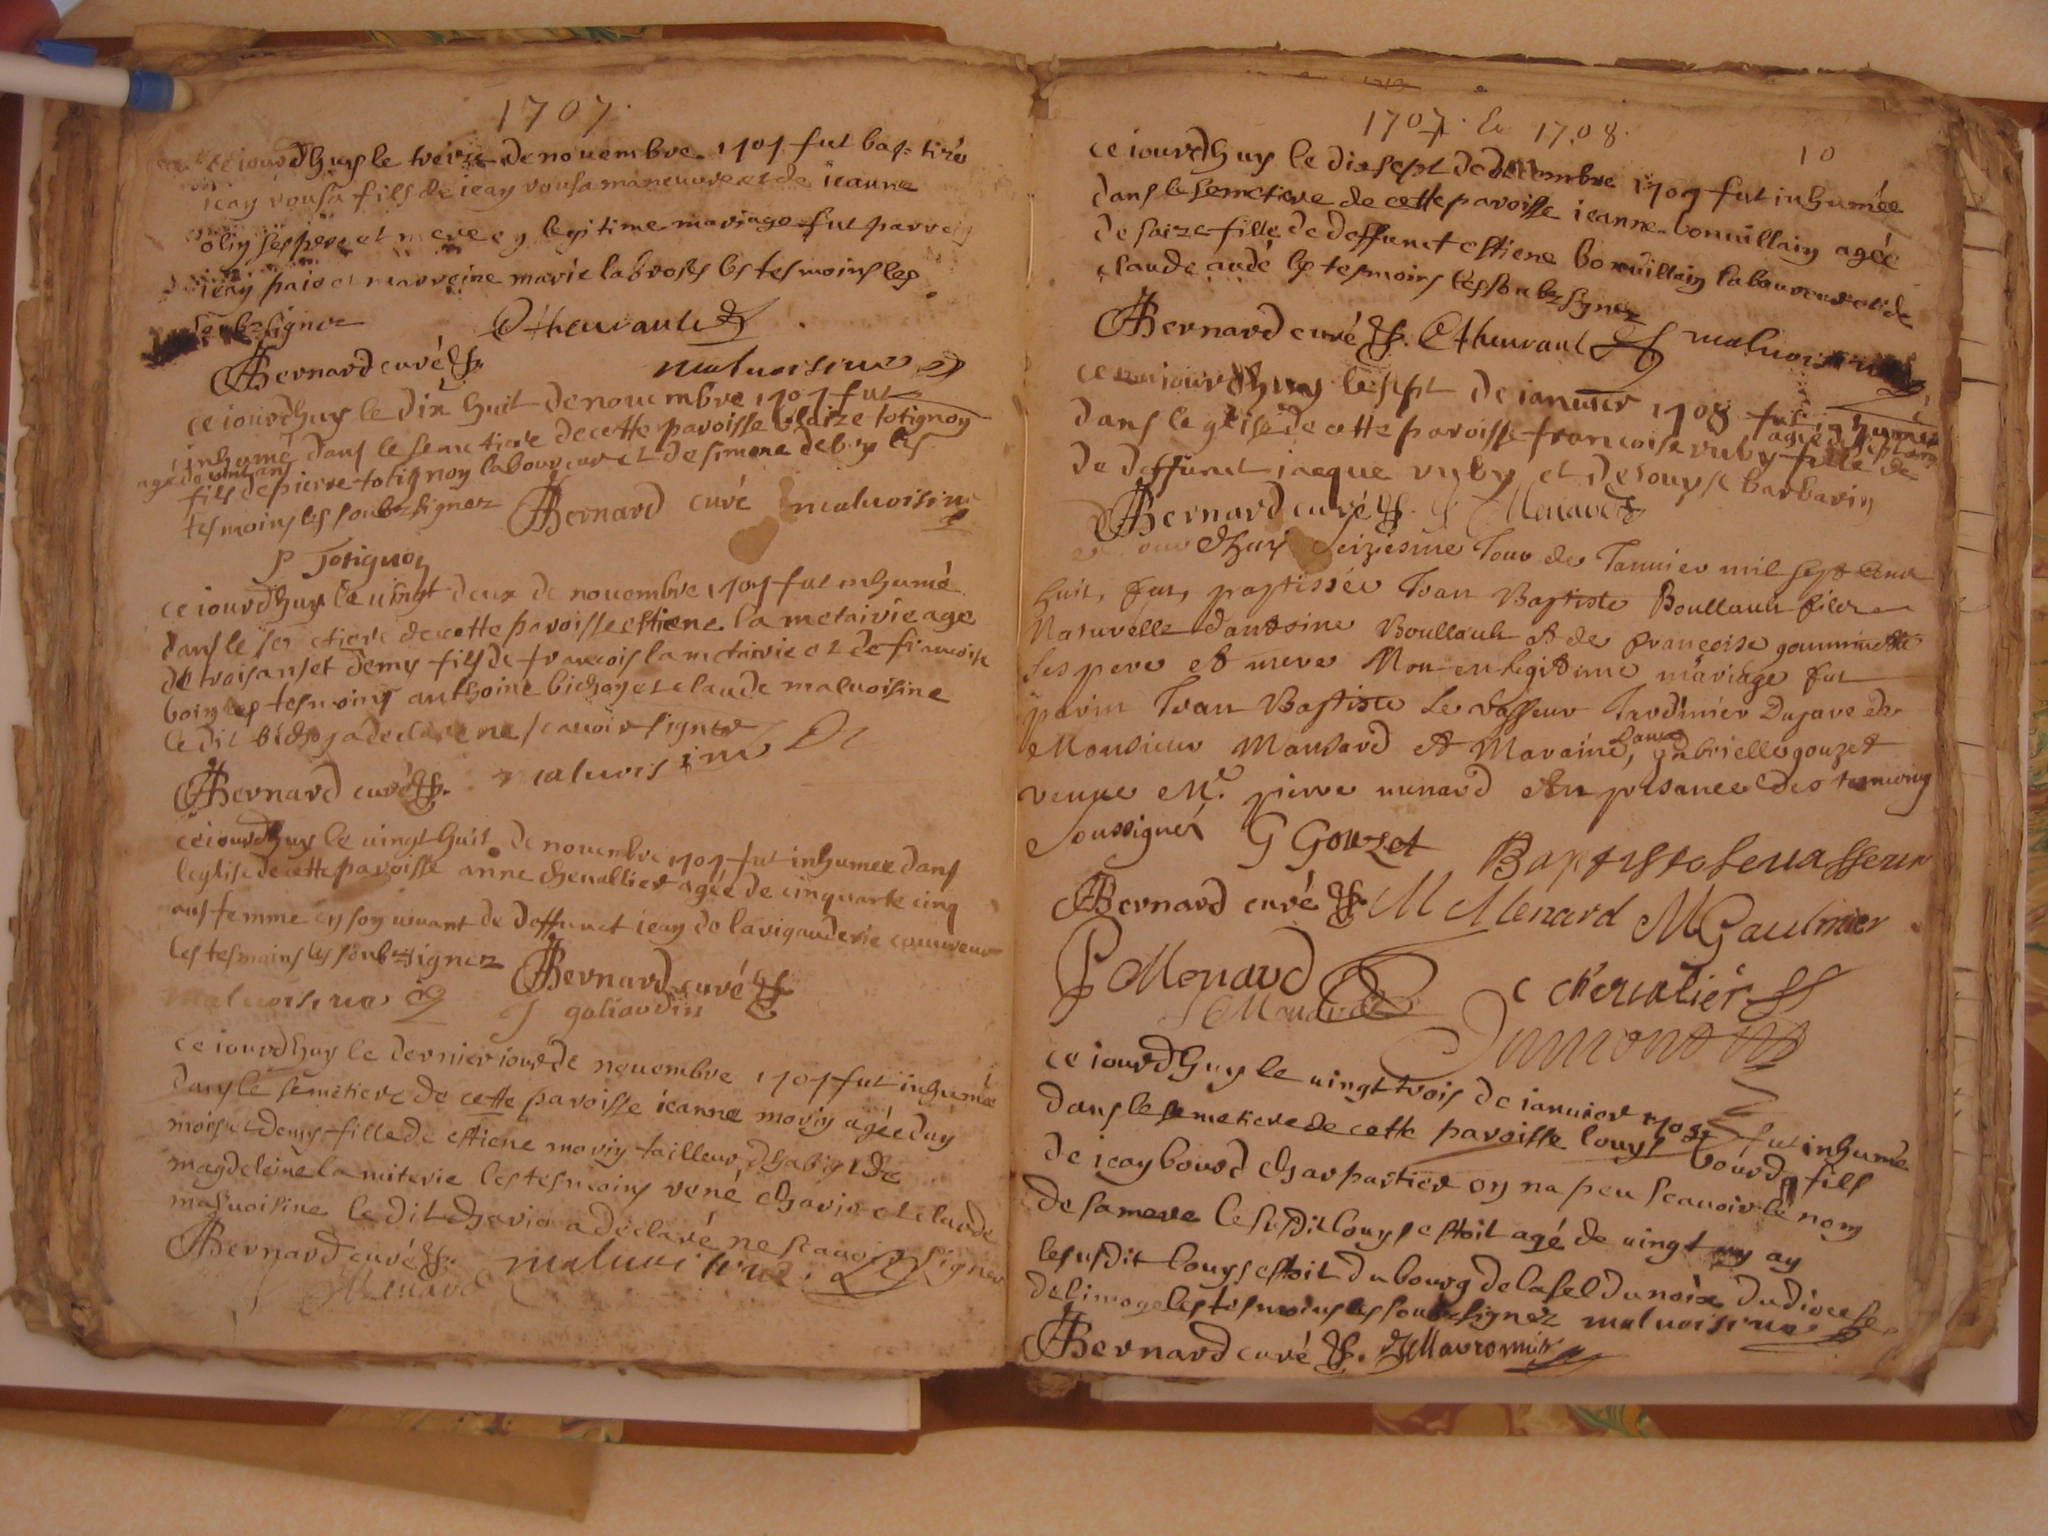 1707.
ce iourdhuy le treize de nouembre 1707 fut baptizé
iean fils de iean manœuure et de ieanne
ses pere et mere en legitime mariage fut parrein
iean et marreine marie labrosse les tesmoins les
soubzsignez
Bernard curé malvoisine
ce iourdhuy le dix huit de nouembre 1707 fut
inhumé dans le semetiere de cette paroisse blaize totignon
agé de vingt ans
fils de pierre totignon laboureur et de simone les
tesmoins les soubzsignez Bernard curé malvoisine
P Totignon
ce iourdhuy le vingt deux de nouembre 1707 fut inhumé
dans le semetiere de cette paroisse estiene la metairie age
de trois ans et demy fils de francois la metairie et de francoise
boin les tesmoins anthoine bichon et claude malvoisine
le dit bichon a declaré ne scauoir signer
Bernard curé malvoisine
ce iourdhuy le vingt huit de nouembre 1707 fut inhumee dans
leglise de cette paroisse anne cheuallier agée de cinquante cinq
ans femme en son viuant de deffunct iean de lavigauderie couureur
les tesmoins les soubzsignez Bernard curé
malvoisine galiaudin
ce iourdhuy le dernier iour de nouembre 1707 fut inhumée
dans le semetiere de cette paroisse ieanne morin agée dun
mois et demy fille de estiene morin tailleur dhabis et de
magdeleine la miterie les tesmoins rené et claude
malvoisine le dit a declaré ne scauoir signer
Bernard curé malvoisine
Menard
1707. Et 1708.
10
ce iourdhuy le dixsept de decembre 1707 fut inhumée
dans le semetiere de cette paroisse ieanne bonuillain agée
de saize fille de deffunct estiene bonuillain laboureur et de
claude audé les tesmoins les soubzsignez
Bernard curé malvoisine
ce iourdhuy le sept de ianuier 1708 fut inhumée
dans leglise de cette paroisse francoise ruby fille
agée de sept ans
de deffunct iacque ruby et de louyse barbarin
Bernard curé Menard
ce iourdhuy seiziesme Jour de Januier mil sept cent
huit, fut, baptissée Jean Baptiste Boullault filz
Naturelle dantoine Boullault et de françoise
ses pere et mere Non en legitime mariage fut
parin Jean Baptiste Le Vasseur Jardinier
Monsieur Mansard et Maraine, gabrielle gouzet
veuue Mr. pierre menard et en presance des temoins
Soussignéz G Gouzet Baptiste leuasseur
Bernard curé M Menard M Gaulmier
P Menard C cheualier
Menard Dumont
ce iourdhuy le vingt trois de ianuier 1708 fut inhumé
dans le semetiere de cette paroisse louys bourd fils
de iean bourd charpantier on na peu scauoir le nom
de sa mere le susdit louys estoit agé de vingt un an
le susdit louys estoit du bourg de du diocese
de limoge les tesmoins les soubzsignez malvoisine
Bernard curé